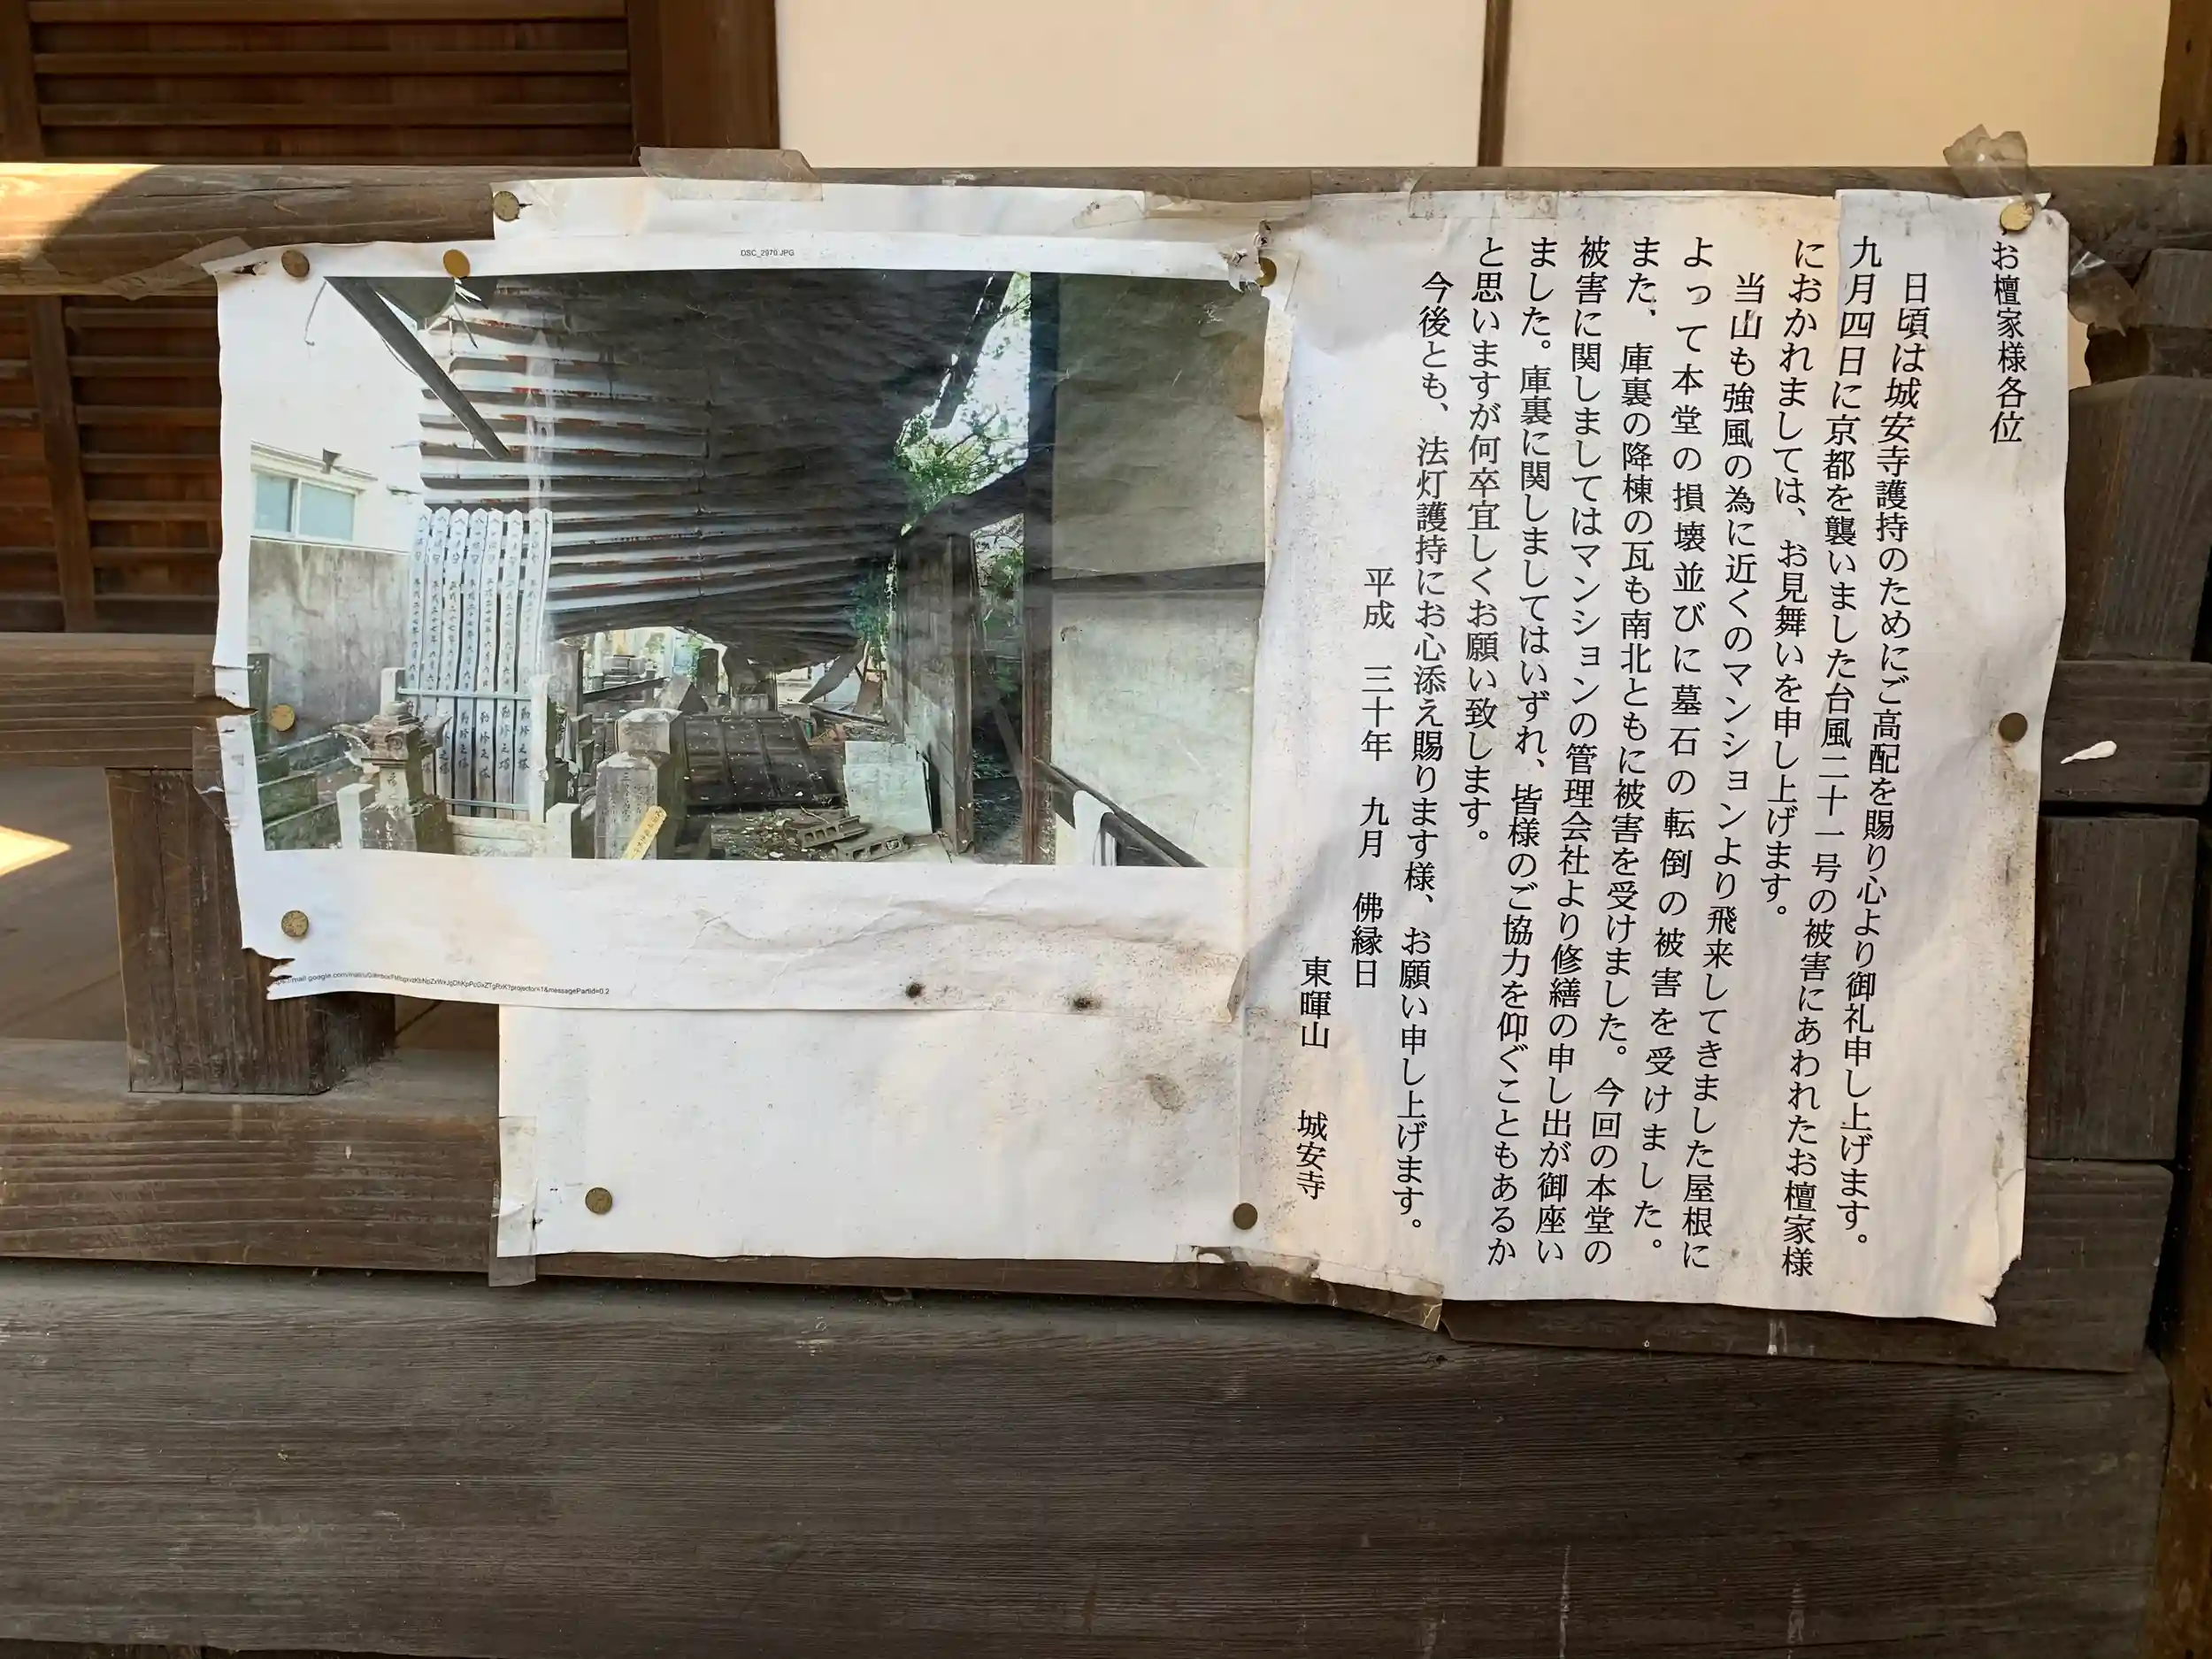 お檀家様各位
日頃は城安寺護持のためにご高配を賜り心より御礼申し上げます。
九月四日に京都を襲いました台風二十一号の被害にあわれたお檀家様
におかれましては、お見舞いを申し上げます。
当山も強風の為に近くのマンションより飛来してきました屋根に
よって本堂の損壊並びに墓石の転倒の被害を受けました。
また、庫裏の降棟の瓦も南北ともに被害を受けました。今回の本堂の
被害に関しましてはマンションの管理会社より修繕の申し出が御座い
ました。庫裏に関しましてはいずれ、皆様のご協力を仰ぐこともあるか
と思いますが何卒宜しくお願い致します。
今後とも、法灯護持にお心添え賜ります様、お願い申し上げます。
平成 三十年 九月 佛縁日
東暉山 城安寺
DSC_2970.JPG